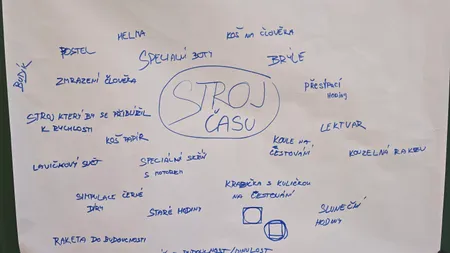 HELMA
KOŠ NA ČLOVĚKA
POSTEL
SPECIALNÍ BOTY
BRÝLE
ZMRAZENÍ ČLOVĚKA
PŘESÝPACÍ
HODINY
STROJ
ČASU
STROJ KTERÝ BY SE PŘIBLÍŽIL
K RYCHLOSTI
KOŠ PAPÍR
LEKTVAR
KOULE NA
CESTOVÁNÍ
KOUZELNÁ
LAVIČKOVÝ SVĚT
SPECIÁLNÍ SKŘÍŇ
S MOTOREM
KRABIČKA S KULIČKOU
NA CESTOVÁNÍ
SIMULACE ČERNÉ
DÍRY
STARÉ HODINY
SLUNEČNÍ
HODINY
RAKETA DO BUDOUCNOSTI
BUDOUCNOST/MINULOST